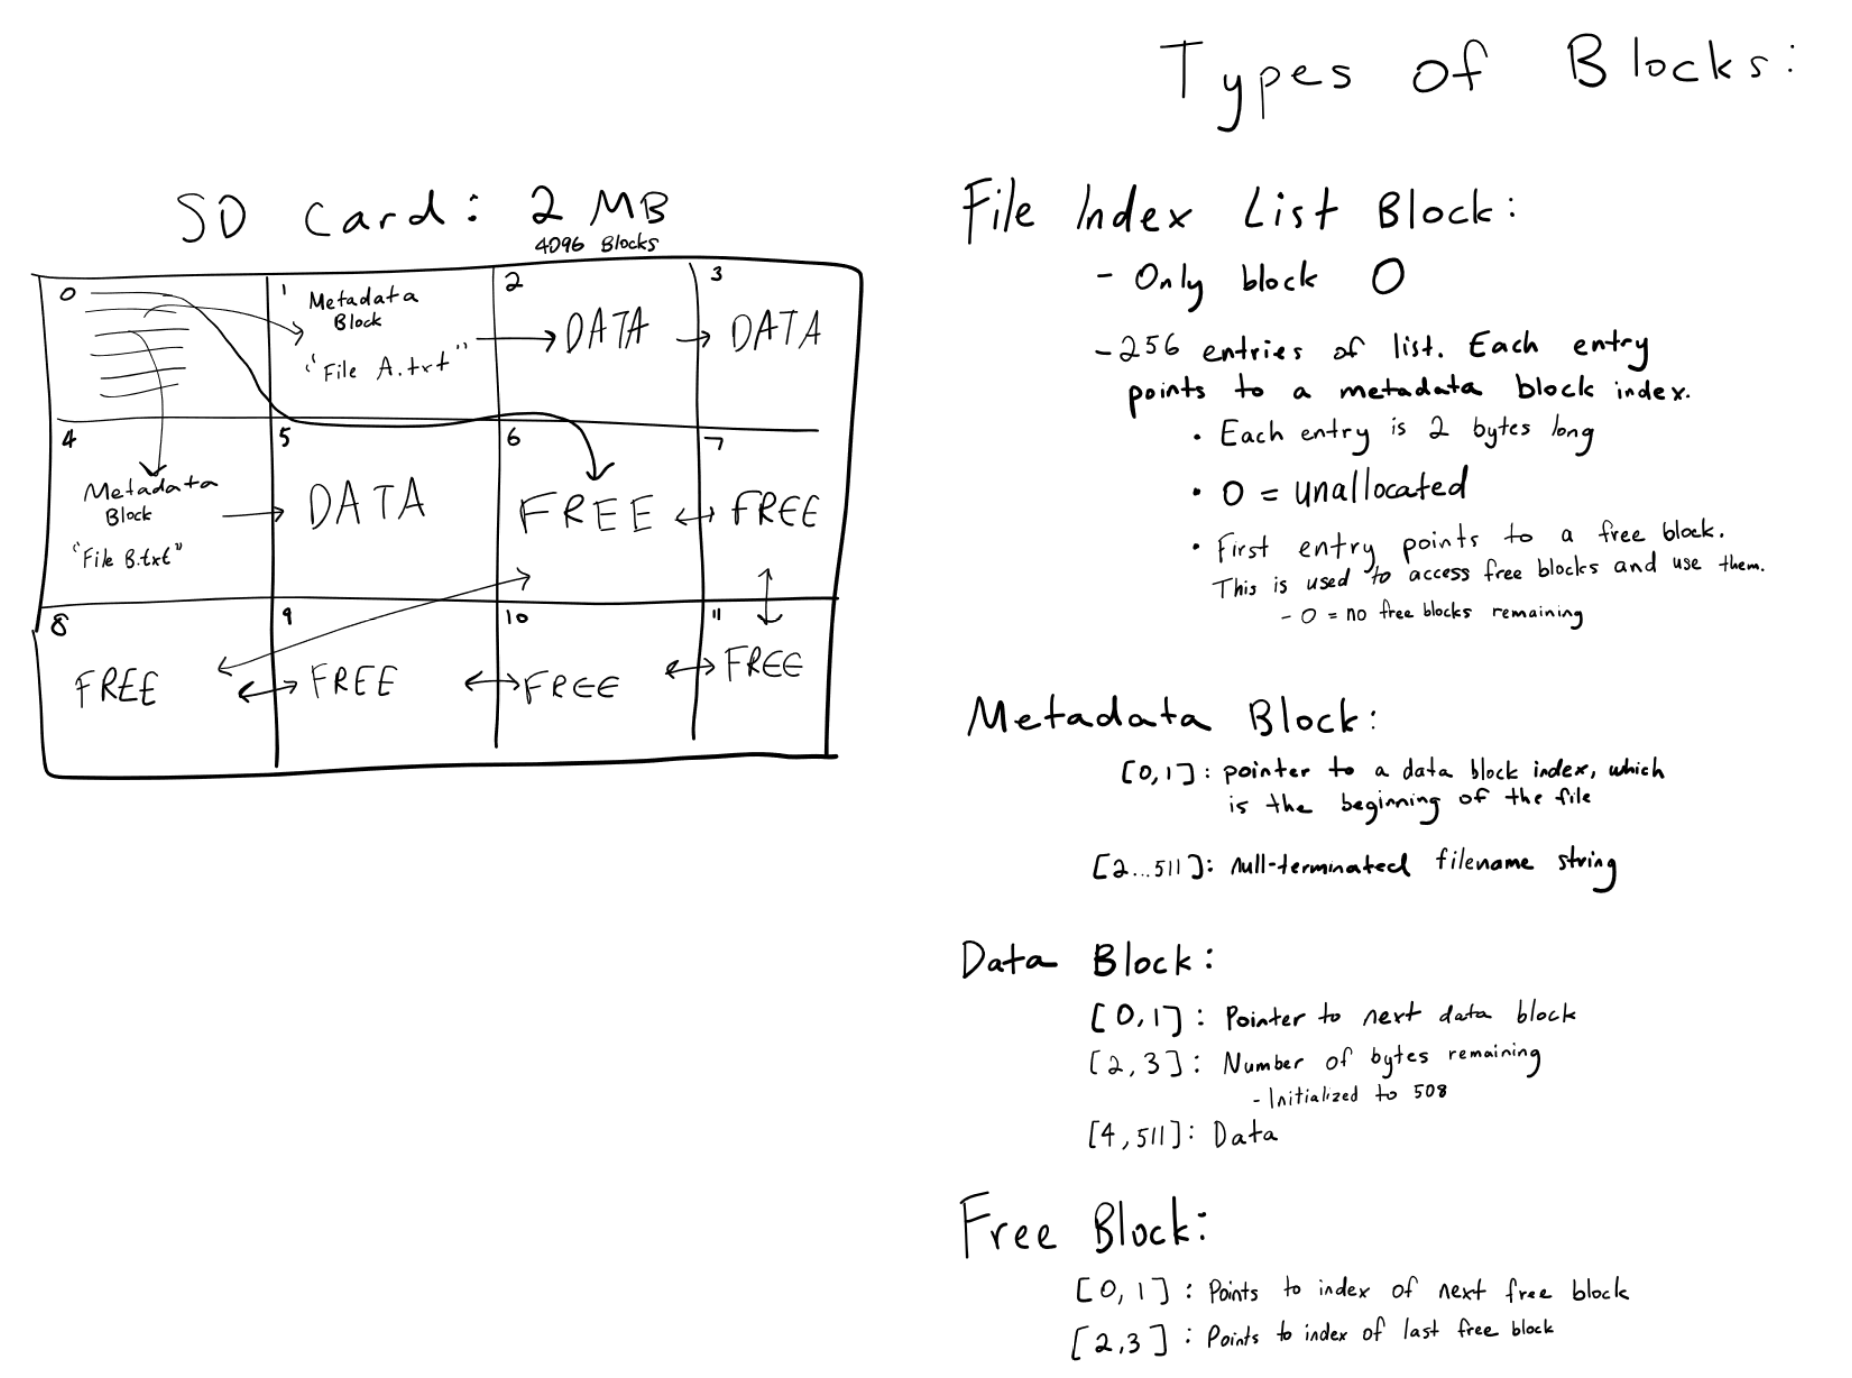 Types of Blocks:
SD Card: 2 MB
4096 Blocks
0
1
Metadata
Block
"File A.txt"
2
DATA
3
DATA
4
Metadata
Block
"File B.txt"
5
DATA
6
FREE
7
FREE
8
FREE
9
FREE
10
FREE
11
FREE
File Index List Block:
- Only block 0
- 256 entries of list. Each entry
points to a metadata block index.
• Each entry is 2 bytes long
• 0 = unallocated
• First entry points to a free block.
This is used to access free blocks and use them.
- 0 = no free blocks remaining
Metadata Block:
[0,1]: pointer to a data block index, which
is the beginning of the file
[2...511]: null-terminated filename string
Data Block:
[0,1]: Pointer to next data block
[2,3]: Number of bytes remaining
- Initialized to 508
[4,511]: Data
Free Block:
[0,1]: Points to index of next free block
[2,3]: Points to index of last free block